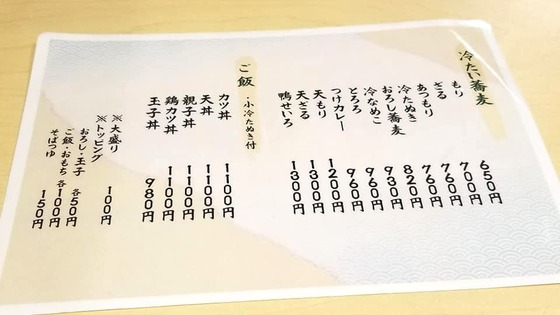 冷たい蕎麦
もり 650円
ざる 700円
あつもり 760円
冷たぬき 760円
おろし蕎麦 820円
冷なめこ 930円
とろろ 960円
つけカレー 960円
天もり 1200円
天ざる 1300円
鴨せいろ 1300円
ご飯 ・小冷たぬき付
カツ丼 1100円
天丼 1100円
親子丼 1100円
鶏カツ丼 1100円
玉子丼 980円
※大盛り 100円
※トッピング
おろし・玉子 各50円
ご飯・おもち 各100円
そばつゆ 150円